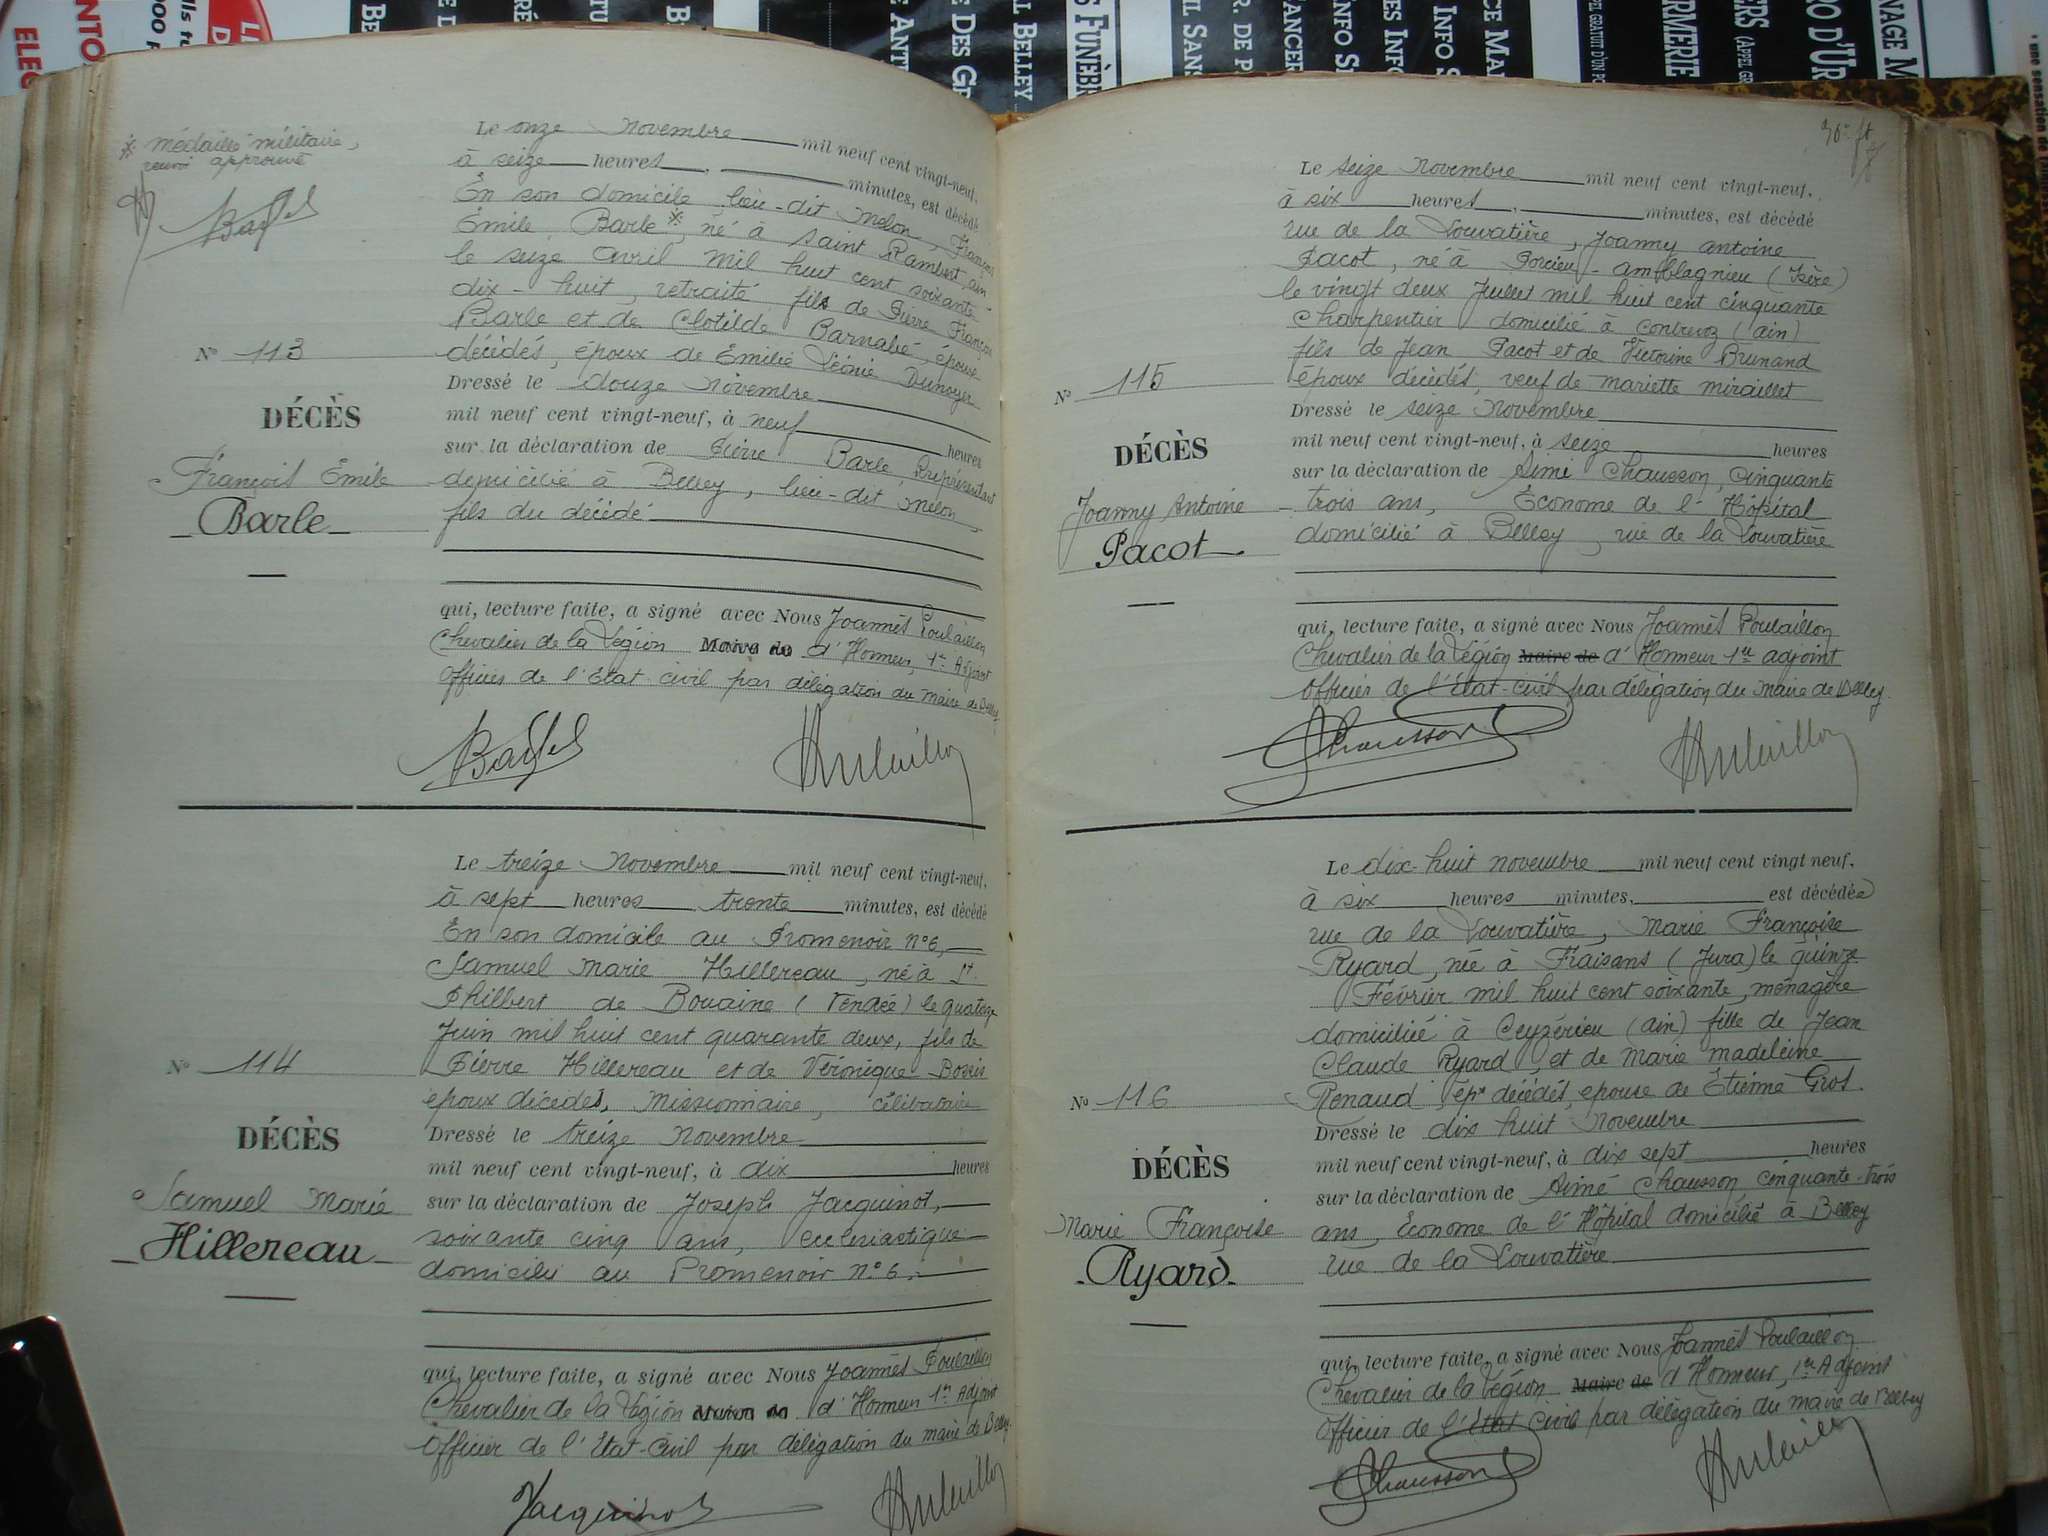 BELLEY
DES
ANT
INFO
SANS
médaille militaire,
renvoi approuvé
Le onze Novembre mil neuf cent vingt-neuf,
à seize heures, minutes, est décédé
En son domicile lieu-dit Melon, François
Emile Barle*, né à Saint Rambert, ain
le seize avril mil huit cent soixante
dix-huit, retraité, fils de Pierre François
Barle et de Clotilde Barnabé, époux
décédés, époux de Emilie Léonie Dunoyer
N° 113
DÉCÈS
François Emile
Barle
Dressé le douze Novembre
mil neuf cent vingt-neuf, à neuf heures
sur la déclaration de Pierre Barle Représentant
domicilié à Belley, lieu-dit Melon,
fils du décédé
qui, lecture faite, a signé avec Nous Joannès Poulaillon
Chevalier de la Légion Maire de d'Honneur, 1er Adjoint
Officier de l'Etat civil par délégation du maire de Belley
Le treize Novembre mil neuf cent vingt-neuf,
à sept heures trente minutes, est décédé
En son domicile au Promenoir N°6,
Samuel Marie Hillereau, né à St
Philbert de Bouaine (Vendée) le quatorze
Juin mil huit cent quarante deux, fils de
Pierre Hillereau et de Véronique Bossis
époux décédés, Missionnaire, célibataire
N° 114
DÉCÈS
Samuel Marie
Hillereau
Dressé le treize Novembre
mil neuf cent vingt-neuf, à dix heures
sur la déclaration de Joseph Jacquinot,
soixante cinq ans, ecclésiastique
domicilié au Promenoir N°6.
qui, lecture faite, a signé avec Nous Joannès Poulaillon
Chevalier de la Légion Maire de d'Honneur 1er Adjoint
Officier de l'Etat-Civil par délégation du maire de Belley
Jacquinot
Le seize Novembre mil neuf cent vingt-neuf,
à six heures, minutes, est décédé
rue de la Louvatière, Joanny Antoine
Pacot, né à Porcieu-Amblagnieu (Isère)
le vingt deux Juillet mil huit cent cinquante
Charpentier domicilié à Contrevoz (ain)
fils de Jean Pacot et de Victorine Brunand
époux décédés, veuf de Mariette Miraillet
N° 115
DÉCÈS
Joanny Antoine
Pacot
Dressé le seize Novembre
mil neuf cent vingt-neuf, à seize heures
sur la déclaration de Aimé Chausson, Cinquante
trois ans, Économe de l'Hôpital
domicilié à Belley, rue de la Louvatière
qui, lecture faite, a signé avec Nous Joannès Poulaillon
Chevalier de la Légion Maire de d'Honneur 1er adjoint
Officier de l'Etat-Civil par délégation du Maire de Belley.
Chausson
Le dix-huit novembre mil neuf cent vingt neuf,
à six heures minutes, est décédée
rue de la Louvatière, Marie Françoise
Ryard, née à Fraisans (Jura) le quinze
Février mil huit cent soixante, ménagère
domiciliée à Ceyzérieu (ain) fille de Jean
Claude Ryard, et de Marie Madeleine
Renaud, épx décédés, épouse de Etienne Gros.
N° 116
DÉCÈS
Marie Françoise
Ryard
Dressé le dix huit Novembre
mil neuf cent vingt-neuf, à dix sept heures
sur la déclaration de Aimé Chausson cinquante-trois
ans, Économe de l'Hôpital domicilié à Belley
rue de la Louvatière
qui, lecture faite, a signé avec Nous Joannès Poulaillon
Chevalier de la Légion Maire de d'Honneur, 1er Adjoint
Officier de l'état Civil par délégation du maire de Belley
Chausson